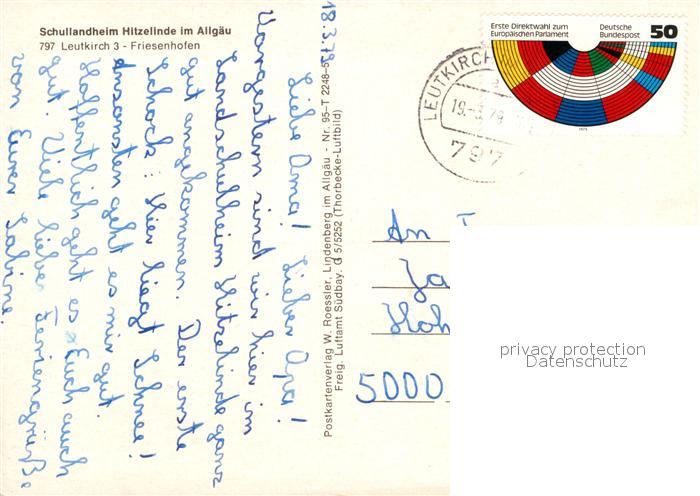 Schullandheim Hitzelinde im Allgäu
797 Leutkirch 3 - Friesenhofen
18.3.79
Liebe Oma! Lieber Opa!
Vorgestern sind wir hier im
Landschulheim Hitzelinde ganz
gut angekommen. Der erste
Schock: Hier liegt Schnee!
Ansonsten geht es mir gut.
Hoffentlich geht es Euch auch
gut. Viele liebe Feriengrüße
von Eurer Sabine.
Postkartenverlag W. Roessler, Lindenberg im Allgäu - Nr. 95-T 2248-5
Freig. Luftamt Südbay. G 5/5252 (Thorbecke-Luftbild)
Erste Direktwahl zum
Europäischen Parlament
Deutsche
Bundespost
50
1979
LEUTKIRCH
19.-3.79
797
An
5000
privacy protection
Datenschutz